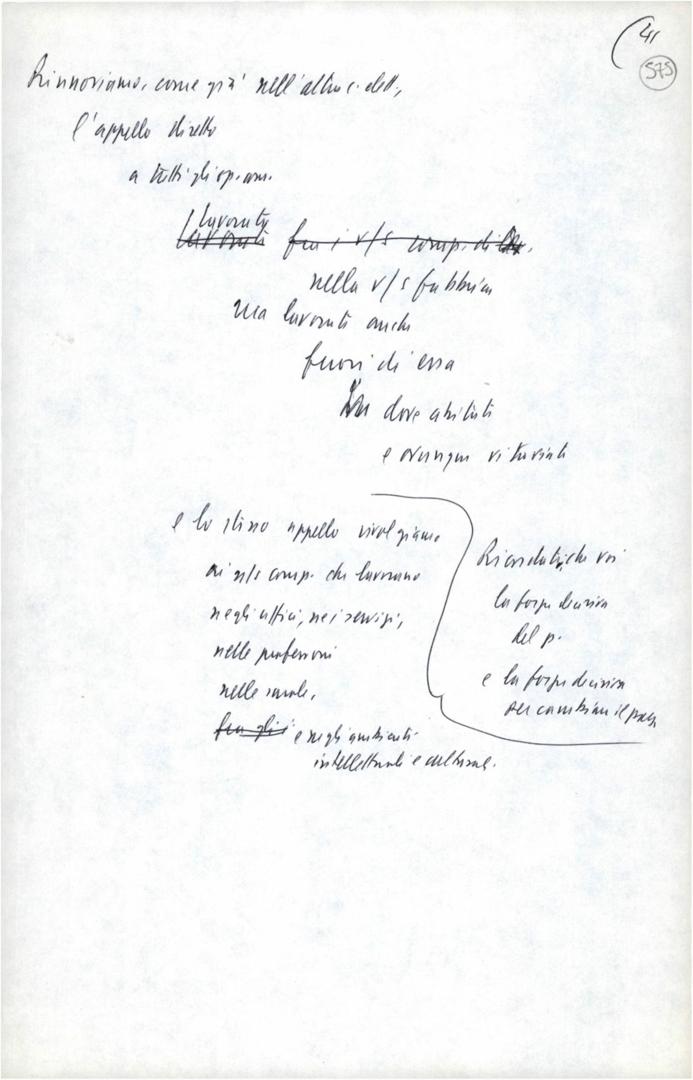 41
575
Rinnoviamo, come già nell'altro c. dett.,
l'appello diretto
a tutti gli operai.
lavorate
lavorate fra i v/s comp. di
nella v/s fabbrica
ma lavorate anche
fuori di essa
dove abitate
e ovunque vi troviate
e lo stesso appello rivolgiamo
ai n/s comp. che lavorano
negli uffici, nei servizi,
nelle professioni
nelle scuole,
fra gli e negli ambienti
intellettuali e culturali.
Ricordate che voi
la forza decisiva
del p.
e la forza decisiva
per cambiare il paese